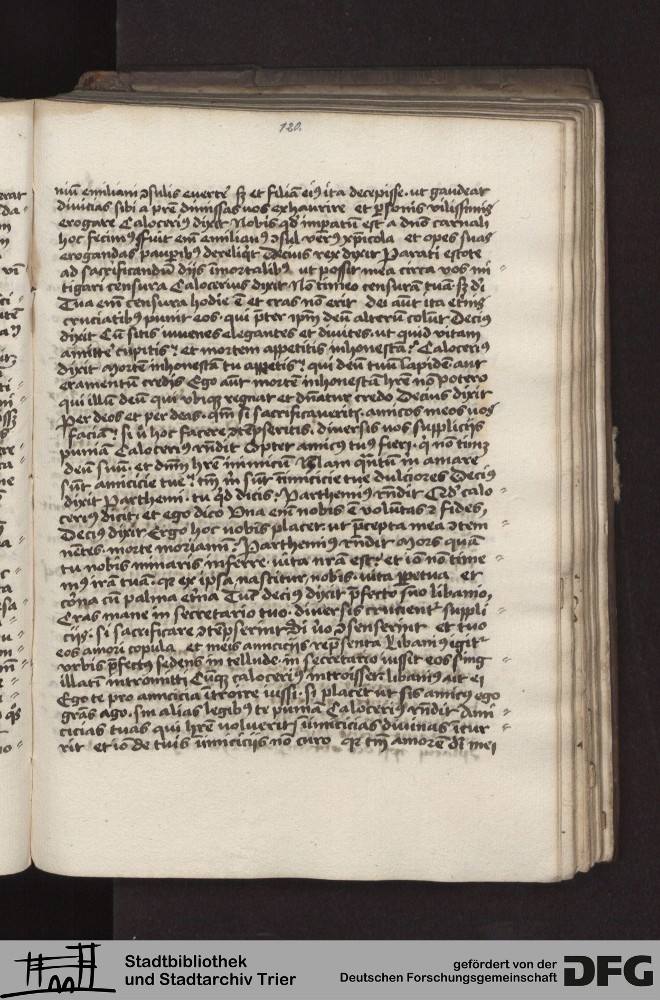 120.
niū emiliani ɔsulis euerte͛ sꝫ et filiā eiꝰ ita decepisse · ut gaudeat
diuicias sibi a pr̄e dimissas uos exhaurire et ꝑsonis vilissimis
erogare Calocerius dixit Nobis qd̛ imꝑatū est a dn̄o carnali
hoc fecimꝰ Fuit em̄ emilianꝰ ɔsul verꝰ xp̄icola et opes suas
erogandas paupibꝰ dereliqͥt Decius rex dixit Parati estote
ad sacrificandū dijs īmortalibꝰ ut possit mea circa vos mi
tigari censura Calocerius dixit No͛ timeo censurā tuā sꝫ di
Tua em̄ censura hodie ē et cras no͛ erit dei aūt ita et̛nis
cruciatibꝰ punit eos · qui p̄ter ip̄m deū alterū colūt Deciꝰ
dixit Cū sitis iuuenes elegantes et diuites · ut quid vitam
amitte͛ cupitis? et mortem appetitis inhonestā? Calocerius
dixit Morte͛ inhonestā tu appetis · qui deū tuū lapide͛ aut
eramentū credis Ego aūt morte͛ inhonestā hr̄e no͛ potero
qui illū deū qui vbiqꝫ regnat et dn̄atur credo Decius dixit
Per deos et per deas · qm̄ si sacrificaueritis · amicos meos uos
faciā? si ū hoc facere ɔte͛pseritis · diuersis vos suppliciis
puniā Calocerius rn̄dit Opter amicꝰ tuꝰ fieri · qͥ no͛ timꝫ
deū suū · et dn̄m hr̄e inimicū Nam quātū in amare
sūt amicicie tue? tm̄ in sūt inimicicie tue dulciores Decius
dixit Parthemi · tu qd̛ dicis? Parthemiꝰ rn̄dit Qd̛ calo
cerius dicit · et ego dico Vna em̄ nobis ē volūtas ⁊ fides,
Decius dixit Ergo hoc nobis placet ut p̄cepta mea ɔtem
nētes · morte moriamī? Parthemiꝰ rn̄dit Mors quā
tu nobis minaris inferre · uita nr̄a est? et iō no͛ time
mꝰ irā tuā · qꝛ ex ipsa nascitur nobis · uita ꝑpetua et
corōa cū palma et̛na Tūc decius dixit p̄fecto suo libanio,
Cras mane in secretario tuo · diuersis crucient̛ suppli
ciis · si sacrificare ɔte͛pserint Si ūo ɔsenserint et tuo
eos amori copula et meis amiciciis rep̄senta Libanius igit̛
vrbis p̄fectꝰ sedens in tellude · in secretario iussit eos sing
illati intromitti Cūqꝫ calocerius introisset libanius ait ei
Ego te pro amicicia ītroire iussi · si placet ut sis amicus ego
gr̄as ago · sin alias legibꝰ te puniā Calocerius rn̄dit Ami
cicias tuas qui hr̄e voluerit īimicicias diuinas īcur
rit et iō de tuis inimiciciis no͛ curo qꝛ tm̄ amore͛ dn̄i mei
Stadtbibliothek
und Stadtarchiv Trier
gefördert von der
Deutschen Forschungsgemeinschaft
DFG